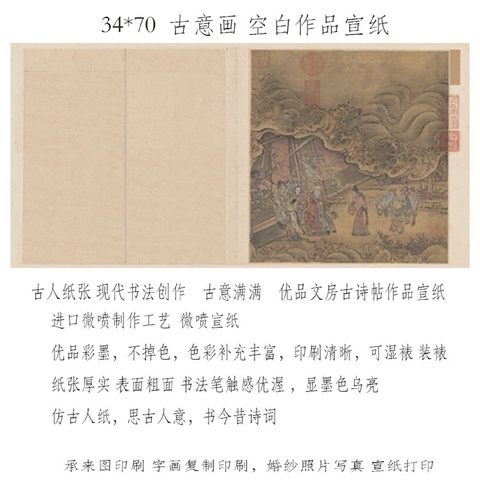 34*70 古意画 空白作品宣纸
古人纸张 现代书法创作 古意满满 优品文房古诗帖作品宣纸
进口微喷制作工艺 微喷宣纸
优品彩墨，不掉色，色彩补充丰富，印刷清晰，可湿裱 装裱
纸张厚实 表面粗面 书法笔触感优渥，显墨色乌亮
仿古人纸，思古人意，书今昔诗词
承来图印刷 字画复制印刷，婚纱照片写真 宣纸打印